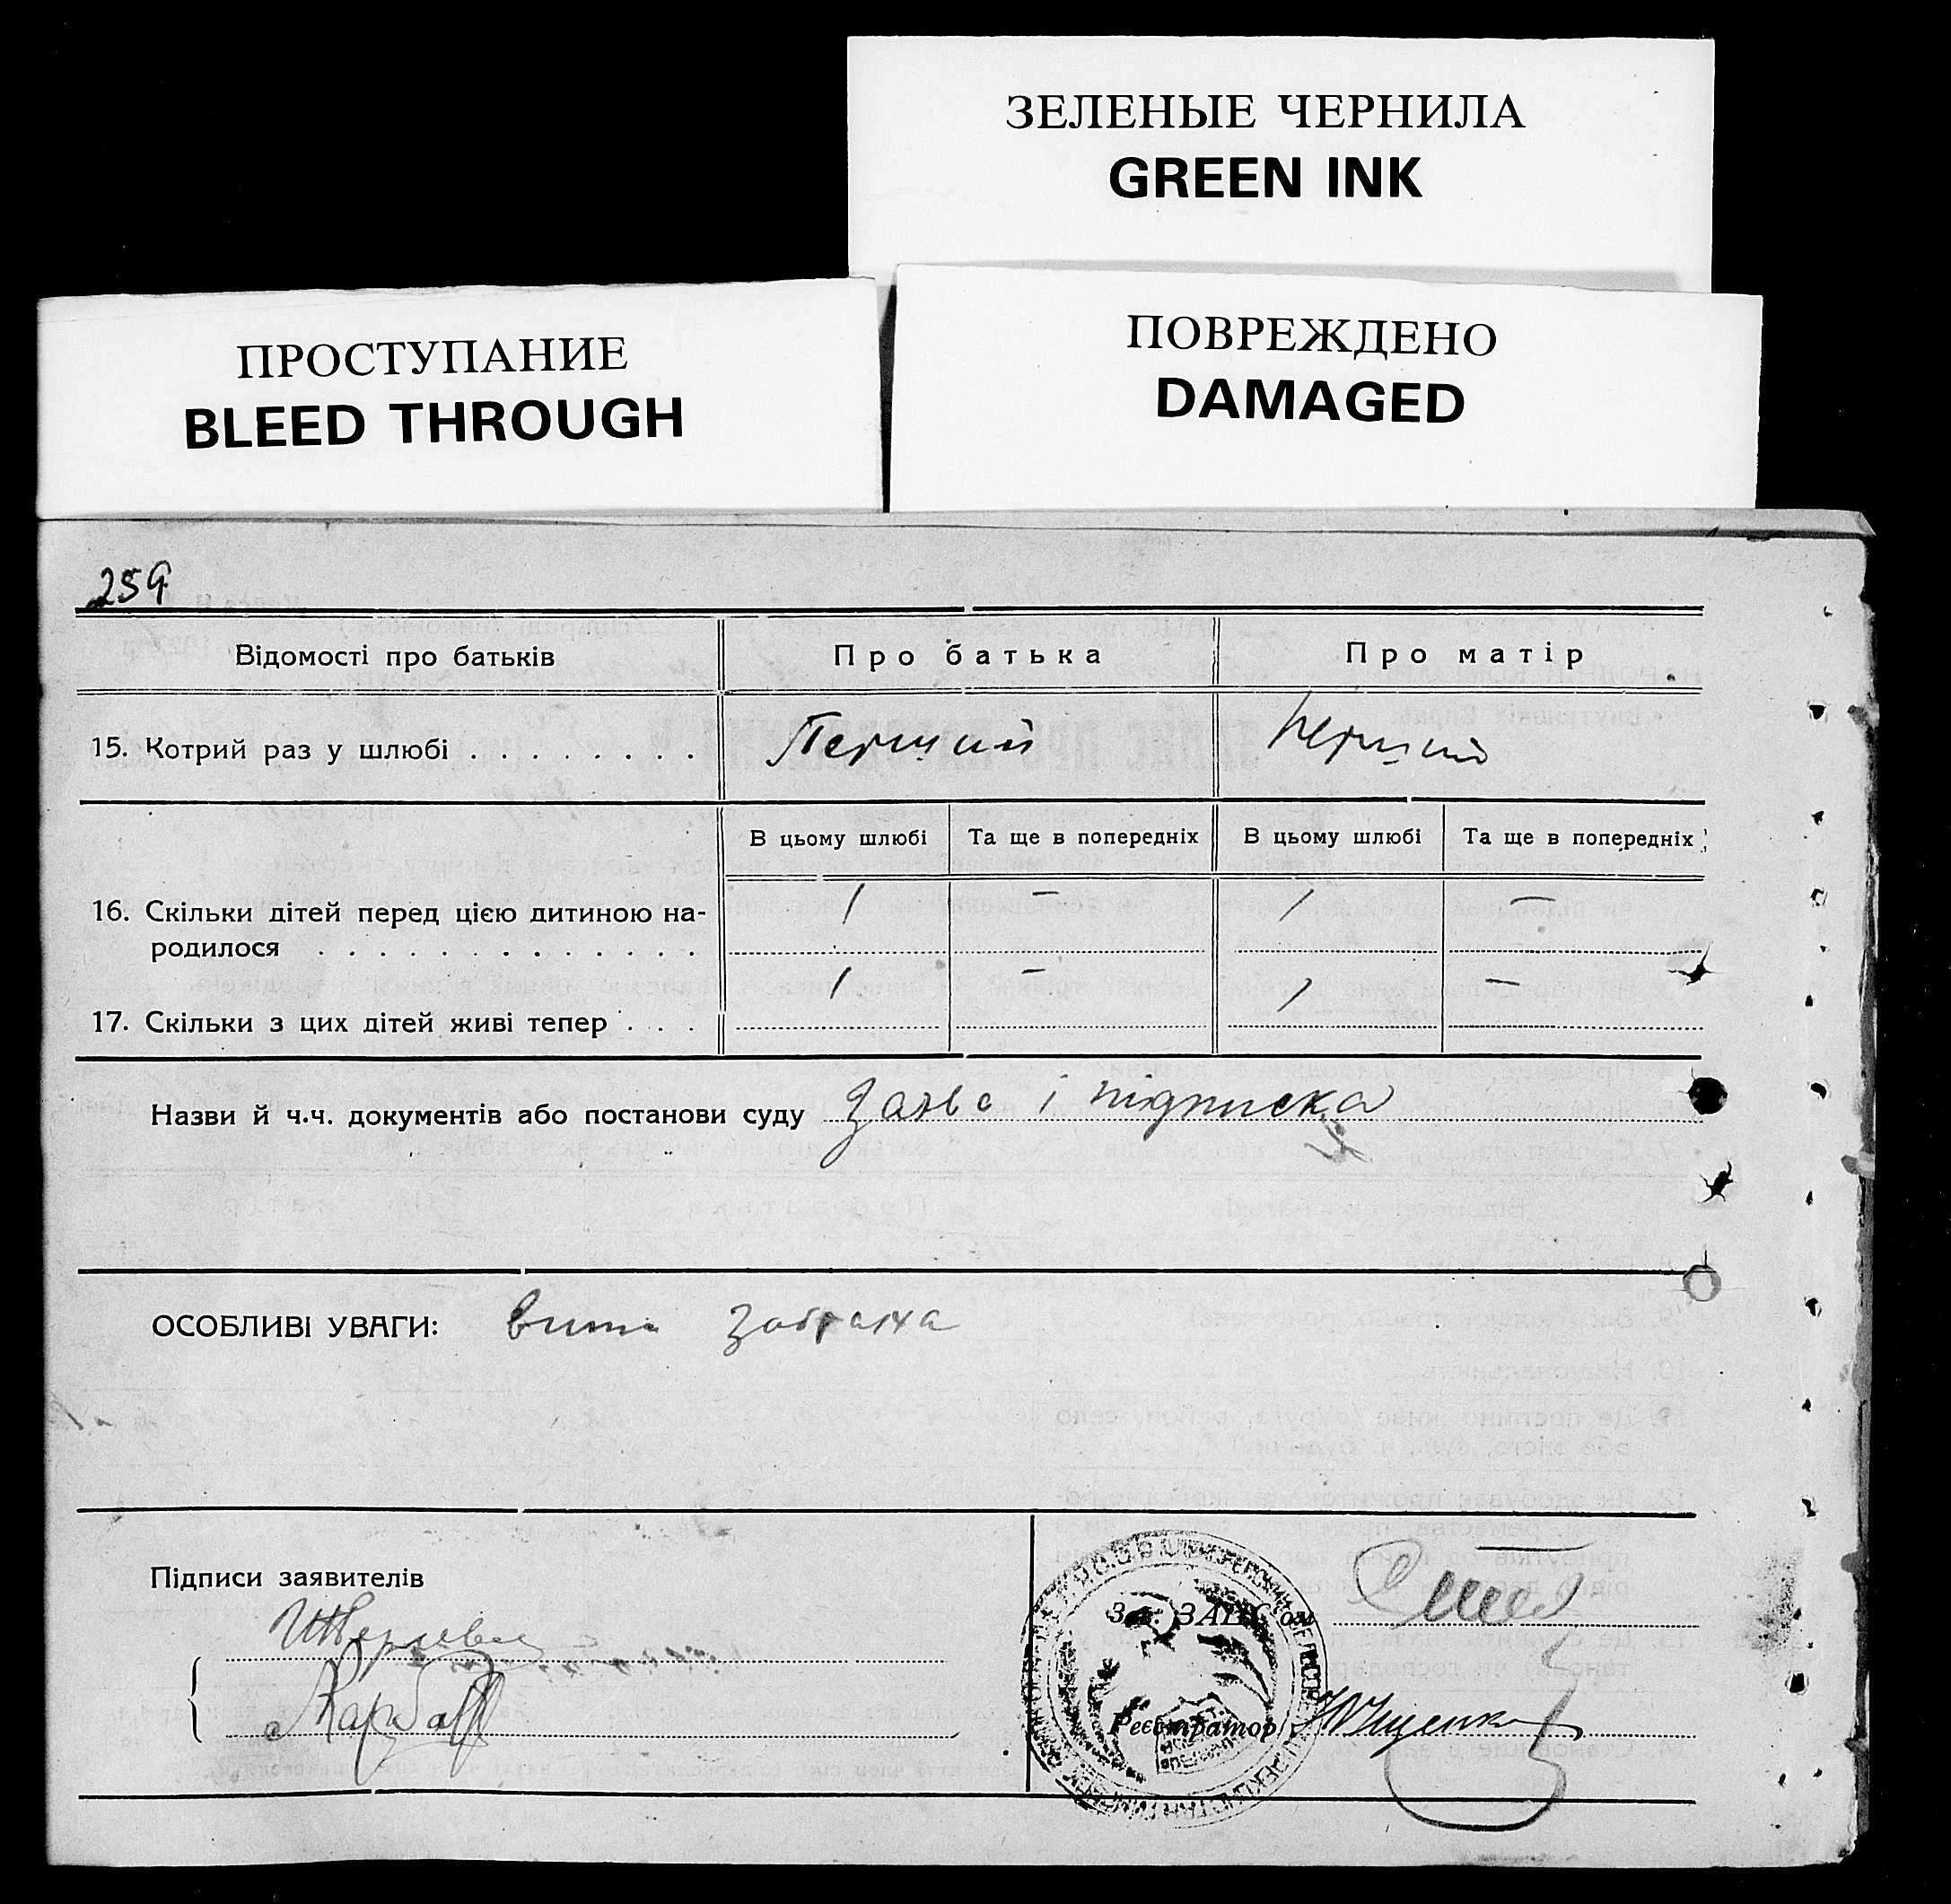 ЗЕЛЕНЫЕ ЧЕРНИЛА
GREEN INK
ПРОСТУПАНИЕ
BLEED THROUGH
ПОВРЕЖДЕНО
DAMAGED
259
Відомості про батьків Про батька Про матір
15. Котрий раз у шлюбі . . . . . . . . Перший Перший
В цьому шлюбі Та ще в попередніх В цьому шлюбі Та ще в попередніх
16. Скільки дітей перед цією дитиною на- 1 — 1 —
родилося . . . . . . . . . . . . .
17. Скільки з цих дітей живі тепер . . . 1 — 1 —
Назви й ч.ч. документів або постанови суду Заява і підписка
ОСОБЛИВІ УВАГИ: забрана
Підписи заявителів
Зав. ЗАГС'ом
Реєстратор